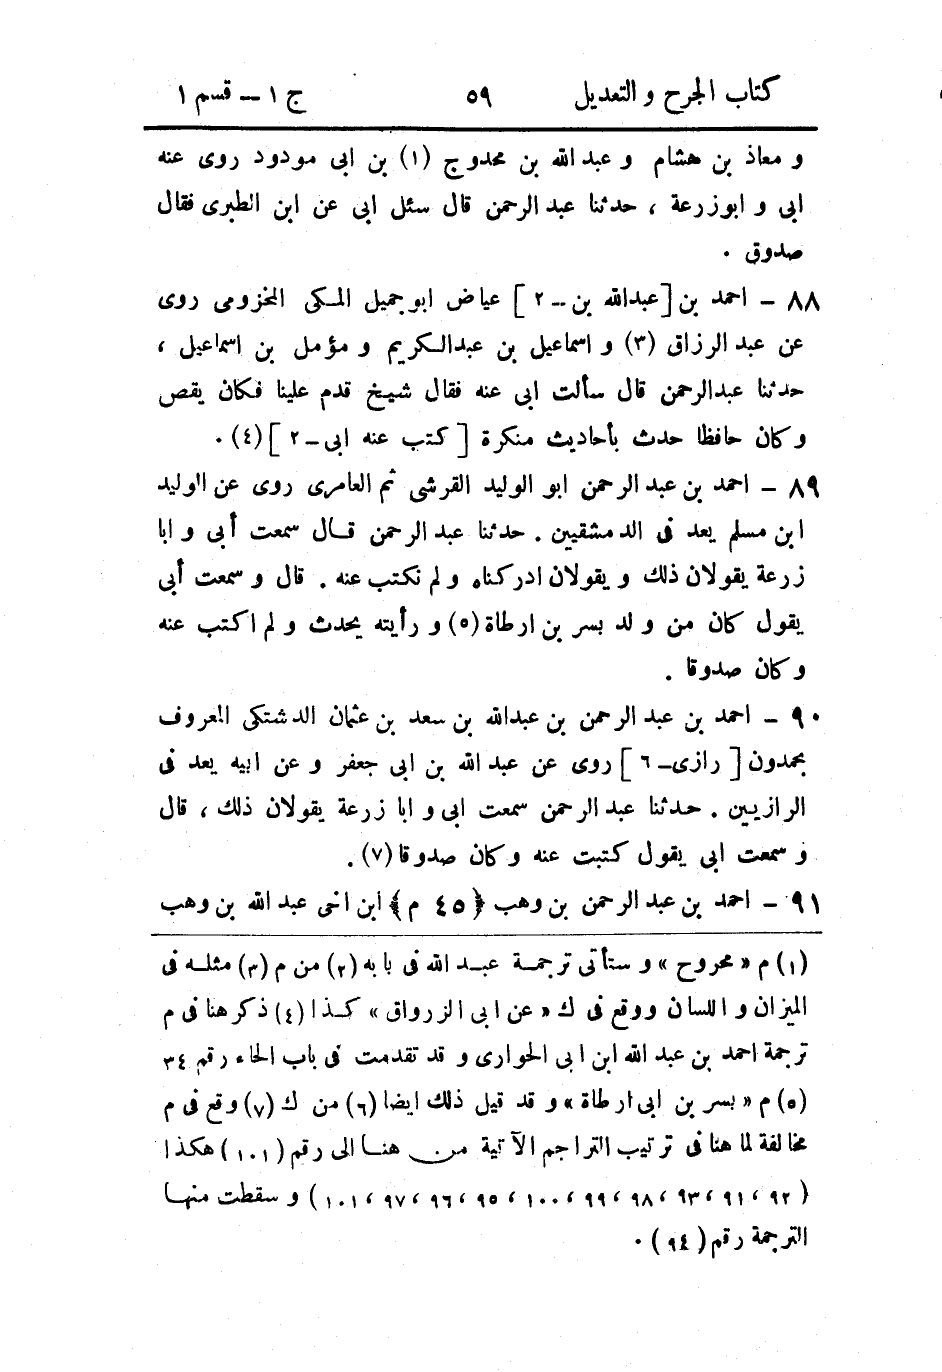 كتاب الجرح و التعديل ٥٩ ج ١ ــ قسم ١
و معاذ بن هشام و عبد الله بن محدوج (١) بن ابى مودود روى عنه
ابى و ابوزرعة ، حدثنا عبد الرحمن قال سئل ابى عن ابن الطبرى فقال
صدوق .
٨٨ - احمد بن [عبدالله بن ــ ٢] عياض ابوجميل المكى المخزومى روى
عن عبد الرزاق (٣) و اسماعيل بن عبدالكريم و مؤمل بن اسماعيل ،
حدثنا عبدالرحمن قال سألت ابى عنه فقال شيخ قدم علينا فكان يقص
وكان حافظا حدث بأحاديث منكرة [كتب عنه ابى ــ ٢] (٤) .
٨٩ - احمد بن عبد الرحمن ابو الوليد القرشى ثم العامرى روى عن الوليد
ابن مسلم يعد فى الدمشقيين . حدثنا عبد الرحمن قال سمعت أبى و ابا
زرعة يقولان ذلك و يقولان ادركناه و لم نكتب عنه . قال و سمعت أبى
يقول كان من ولد بسر بن ارطاة (٥) و رأيته يحدث و لم اكتب عنه
وكان صدوقا .
٩٠ - احمد بن عبد الرحمن بن عبدالله بن سعد بن عثمان الدشتكى المعروف
بحمدون [رازى ــ ٦] روى عن عبد الله بن ابى جعفر و عن ابيه يعد فى
الرازيين . حدثنا عبد الرحمن سمعت ابى و ابا زرعة يقولان ذلك ، قال
و سمعت ابى يقول كتبت عنه وكان صدوقا (٧) .
٩١ - احمد بن عبد الرحمن بن وهب ﴿٤٥ م﴾ ابن اخى عبد الله بن وهب
(١) م «محروح» و ستأتى ترجمة عبد الله فى بابه (٢) من م (٣) مثله فى
الميزان و اللسان ووقع فى ك «عن ابى الزرواق» كذا (٤) ذكر هنا فى م
ترجمة احمد بن عبد الله ابن ابى الحوارى و قد تقدمت فى باب الحاء رقم ٣٤
(٥) م «بسر بن ابى ارطاة» و قد قيل ذلك ايضا (٦) من ك (٧) وقع فى م
مخالفة لما هنا فى ترتيب التراجم الآتية من هنا الى رقم (١٠١) هكذا
(٩٢ ، ٩١ ، ٩٣ ، ٩٨ ، ٩٩ ، ١٠٠ ، ٩٥ ، ٩٦ ، ٩٧ ، ١٠١) و سقطت منها
الترجمة رقم (٩٤) .